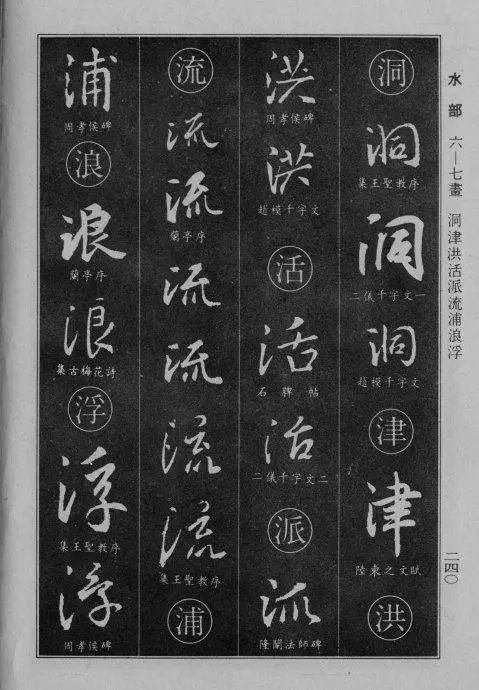 水部 六—七畫 洞津洪活派流浦浪浮
二四〇
洞
洞
集王聖教序
洞
二儀千字文一
洞
趙模千字文
津
津
陸柬之文賦
洪
洪
周孝侯碑
洪
趙模千字文
活
活
石牌帖
活
二儀千字文二
派
派
隆闡法師碑
流
流
流
蘭亭序
流
流
流
流
集王聖教序
浦
浦
周孝侯碑
浪
浪
蘭亭序
浪
集古梅花詩
浮
浮
集王聖教序
浮
周孝侯碑